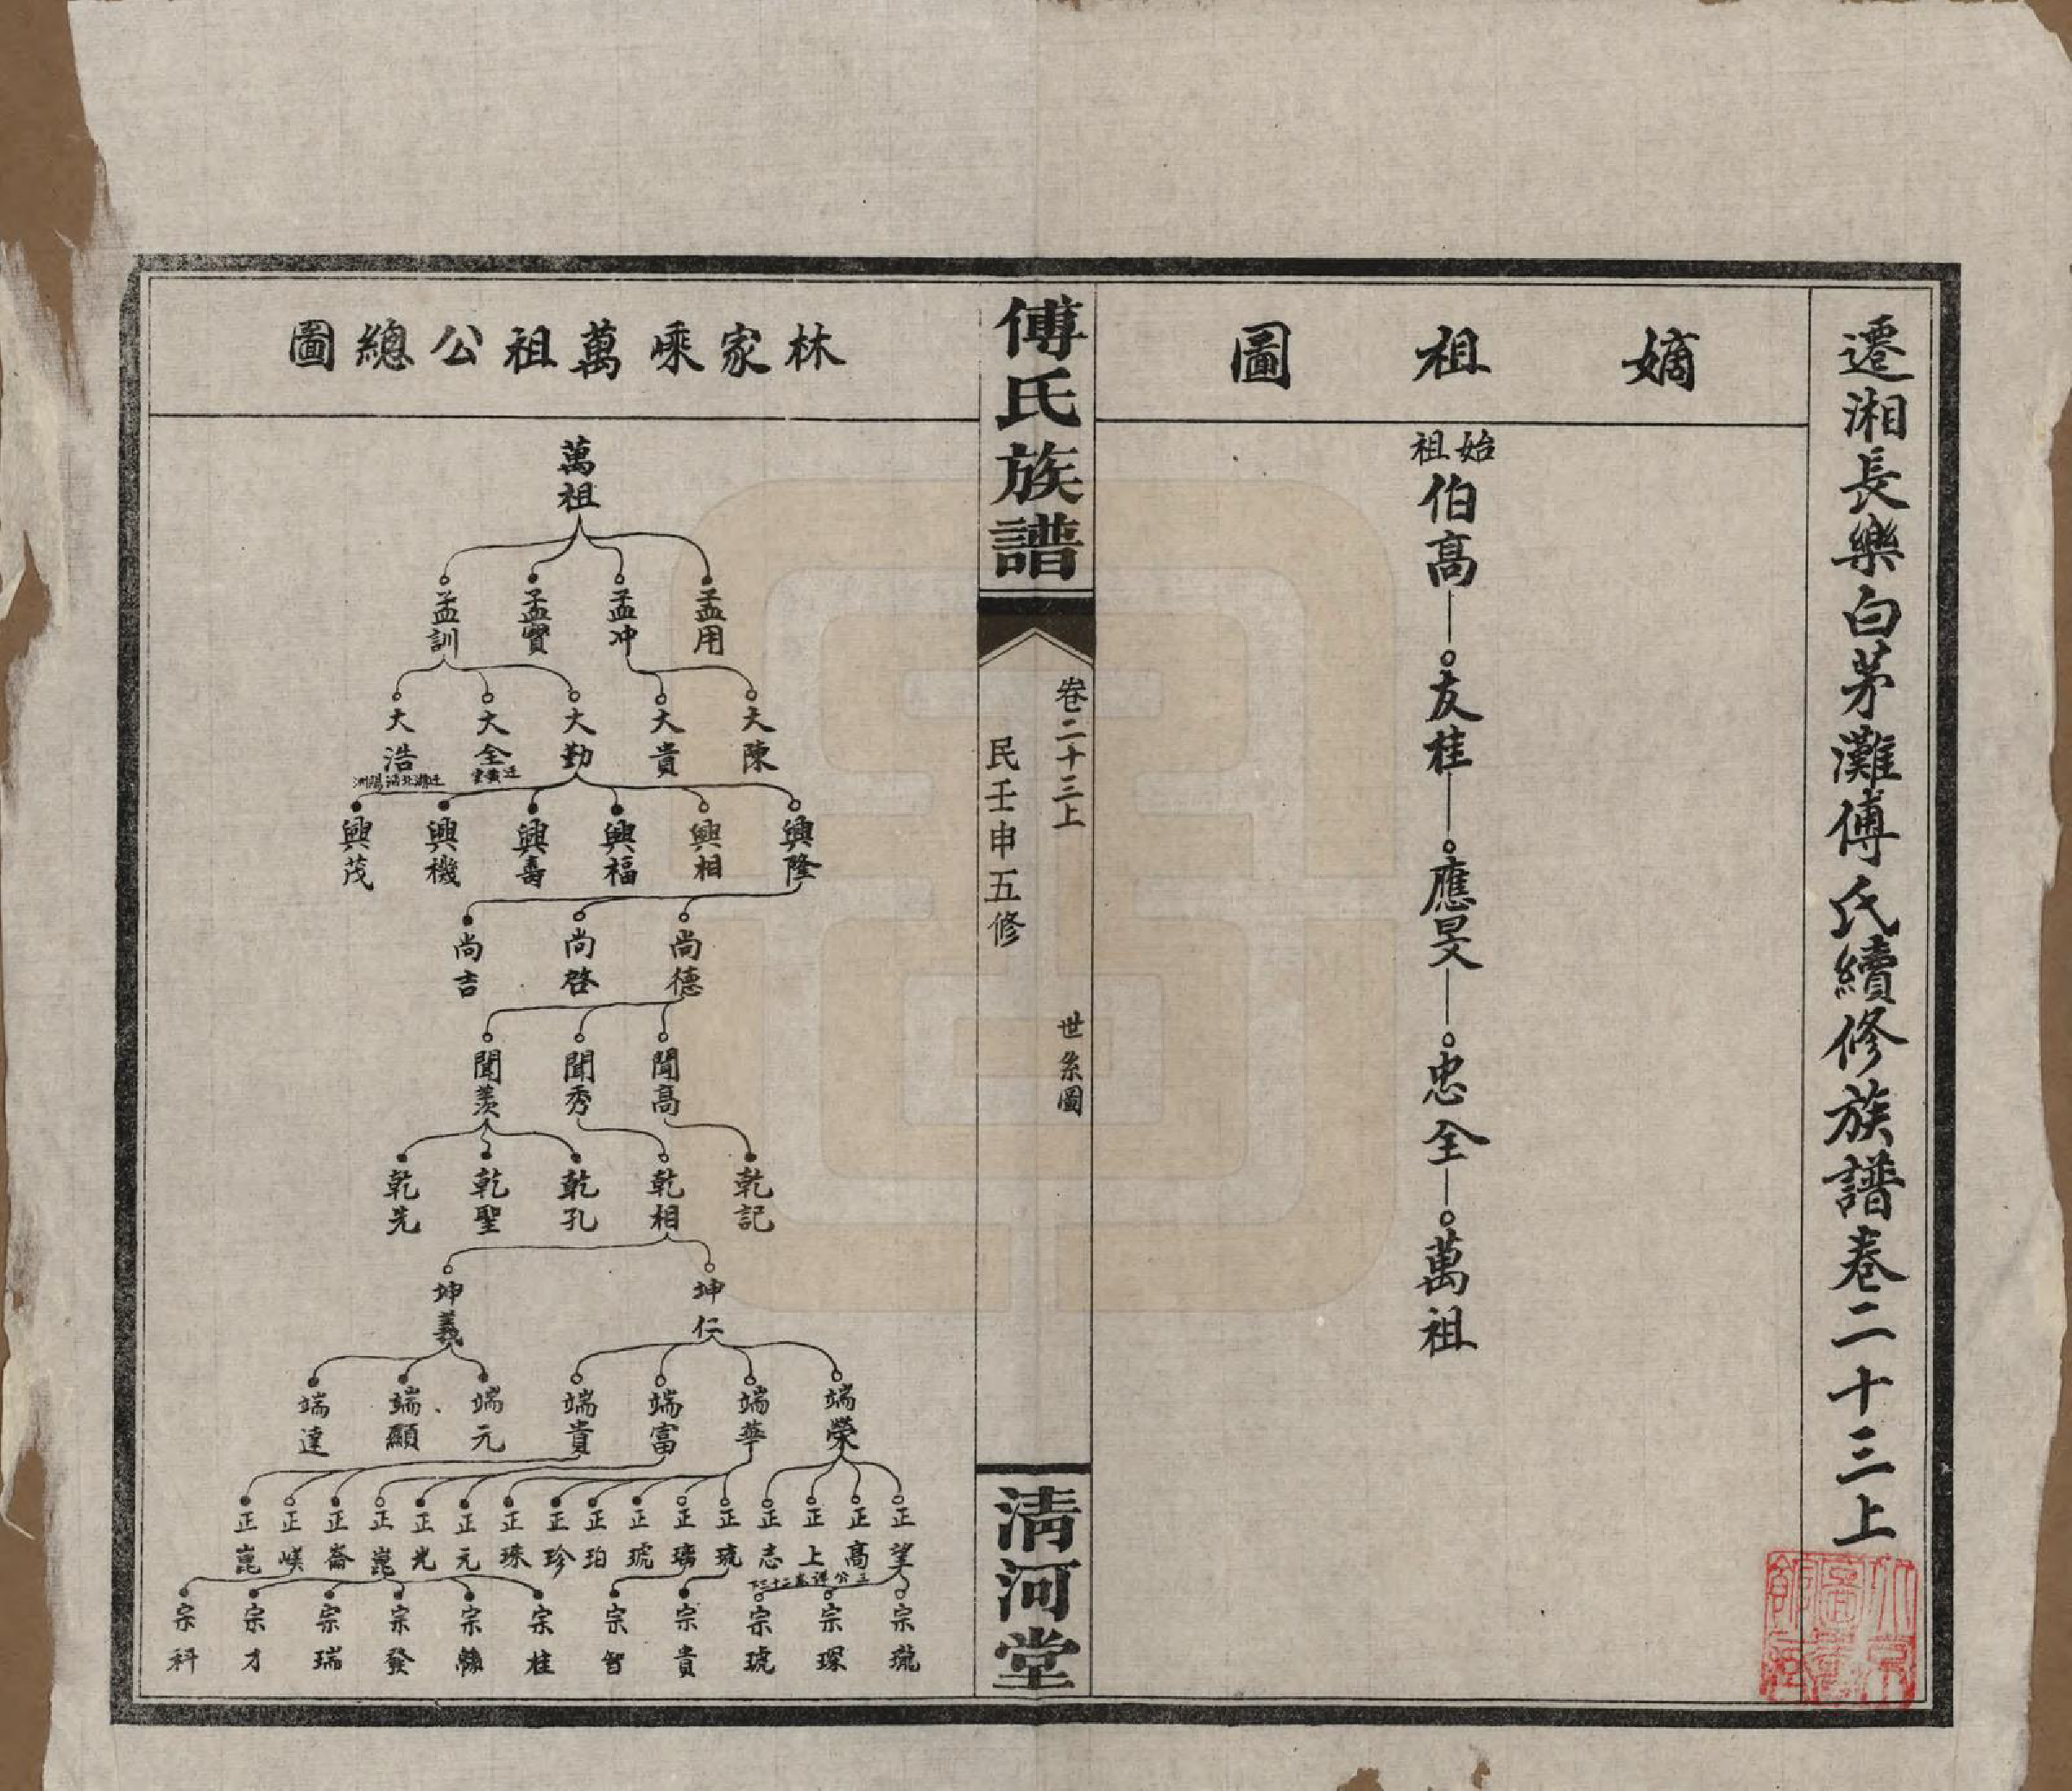 遷湘長樂白茅灘傅氏續修族譜卷二十三上
嫡祖圖
始祖
伯高
友桂
應旻
忠全
萬祖
傅氏族譜
卷二十三上
世系圖
民壬申五修
清河堂
林家乘萬祖公總圖
萬祖
孟用
孟冲
孟寶
孟訓
大陳
大貴
大勤
大全
大浩
興隆
興相
興福
興壽
興機
興茂
尚德
尚啓
尚吉
聞高
聞秀
聞羨
乾記
乾相
乾孔
乾聖
乾先
坤仁
坤義
端榮
端華
端富
端貴
端元
端顯
端達
正望
正高
正上
正志
正琉
正璃
正琥
正珀
正珍
正珠
正元
正光
正崑
正崙
正嵘
正崑
宗瓏
宗琛
宗琥
宗貴
宗智
宗桂
宗發
宗瑞
宗才
宗科